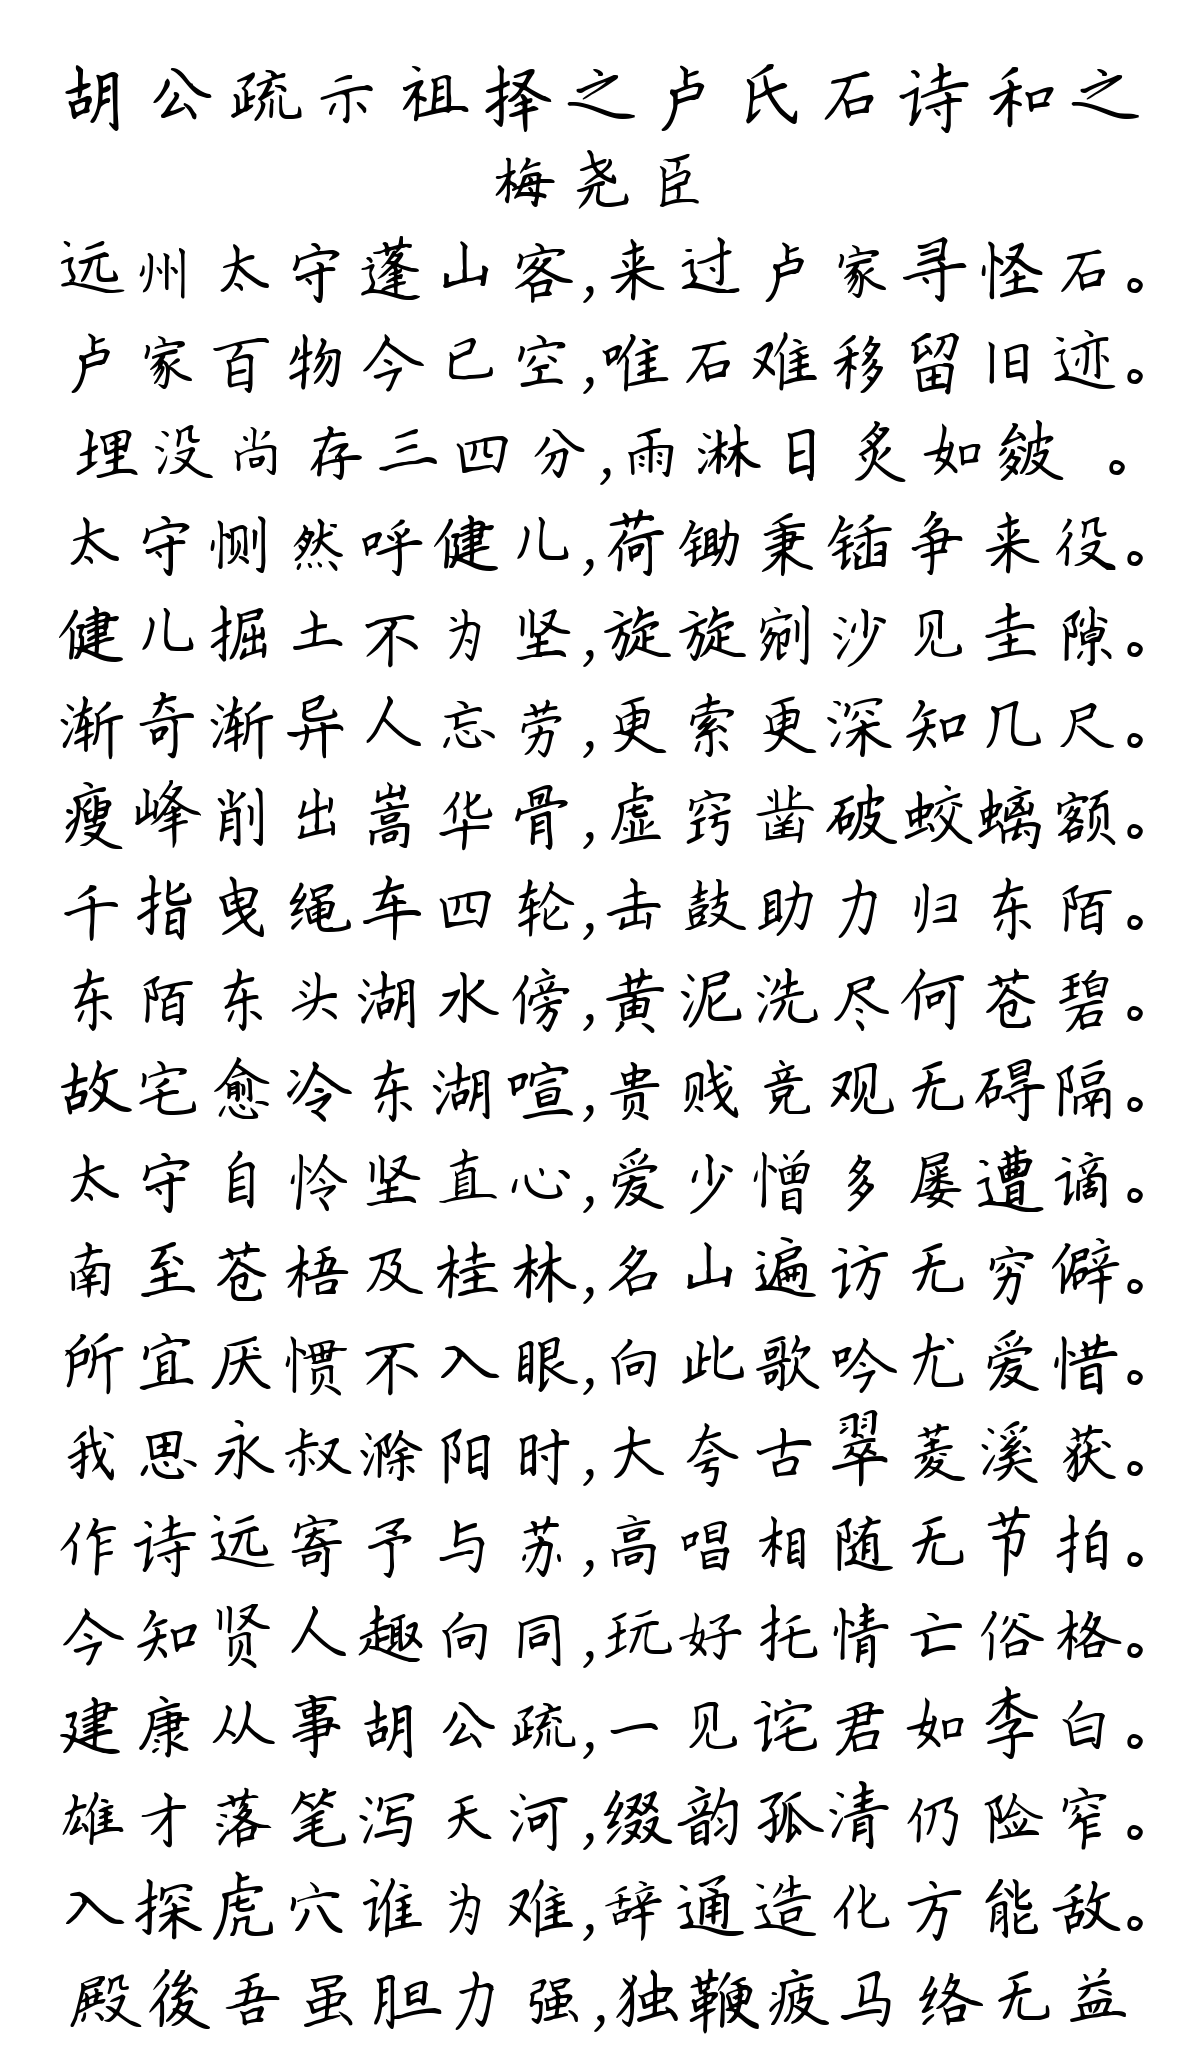 胡公疏示祖择之卢氏石诗和之
梅尧臣
远州太守蓬山客,来过卢家寻怪石。
卢家百物今已空,唯石难移留旧迹。
埋没尚存三四分,雨淋日炙如皴 。
太守恻然呼健儿,荷锄秉锸争来役。
健儿掘土不为坚,旋旋剜沙见圭隙。
渐奇渐异人忘劳,更索更深知几尺。
瘦峰削出嵩华骨,虚窍凿破蛟螭额。
千指曳绳车四轮,击鼓助力归东陌。
东陌东头湖水傍,黄泥洗尽何苍碧。
故宅愈冷东湖喧,贵贱竞观无碍隔。
太守自怜坚直心,爱少憎多屡遭谪。
南至苍梧及桂林,名山遍访无穷僻。
所宜厌惯不入眼,向此歌吟尤爱惜。
我思永叔滁阳时,大夸古翠菱溪获。
作诗远寄予与苏,高唱相随无节拍。
今知贤人趣向同,玩好托情亡俗格。
建康从事胡公疏,一见诧君如李白。
雄才落笔泻天河,缀韵孤清仍险窄。
入探虎穴谁为难,辞通造化方能敌。
殿後吾虽胆力强,独鞭疲马络无益